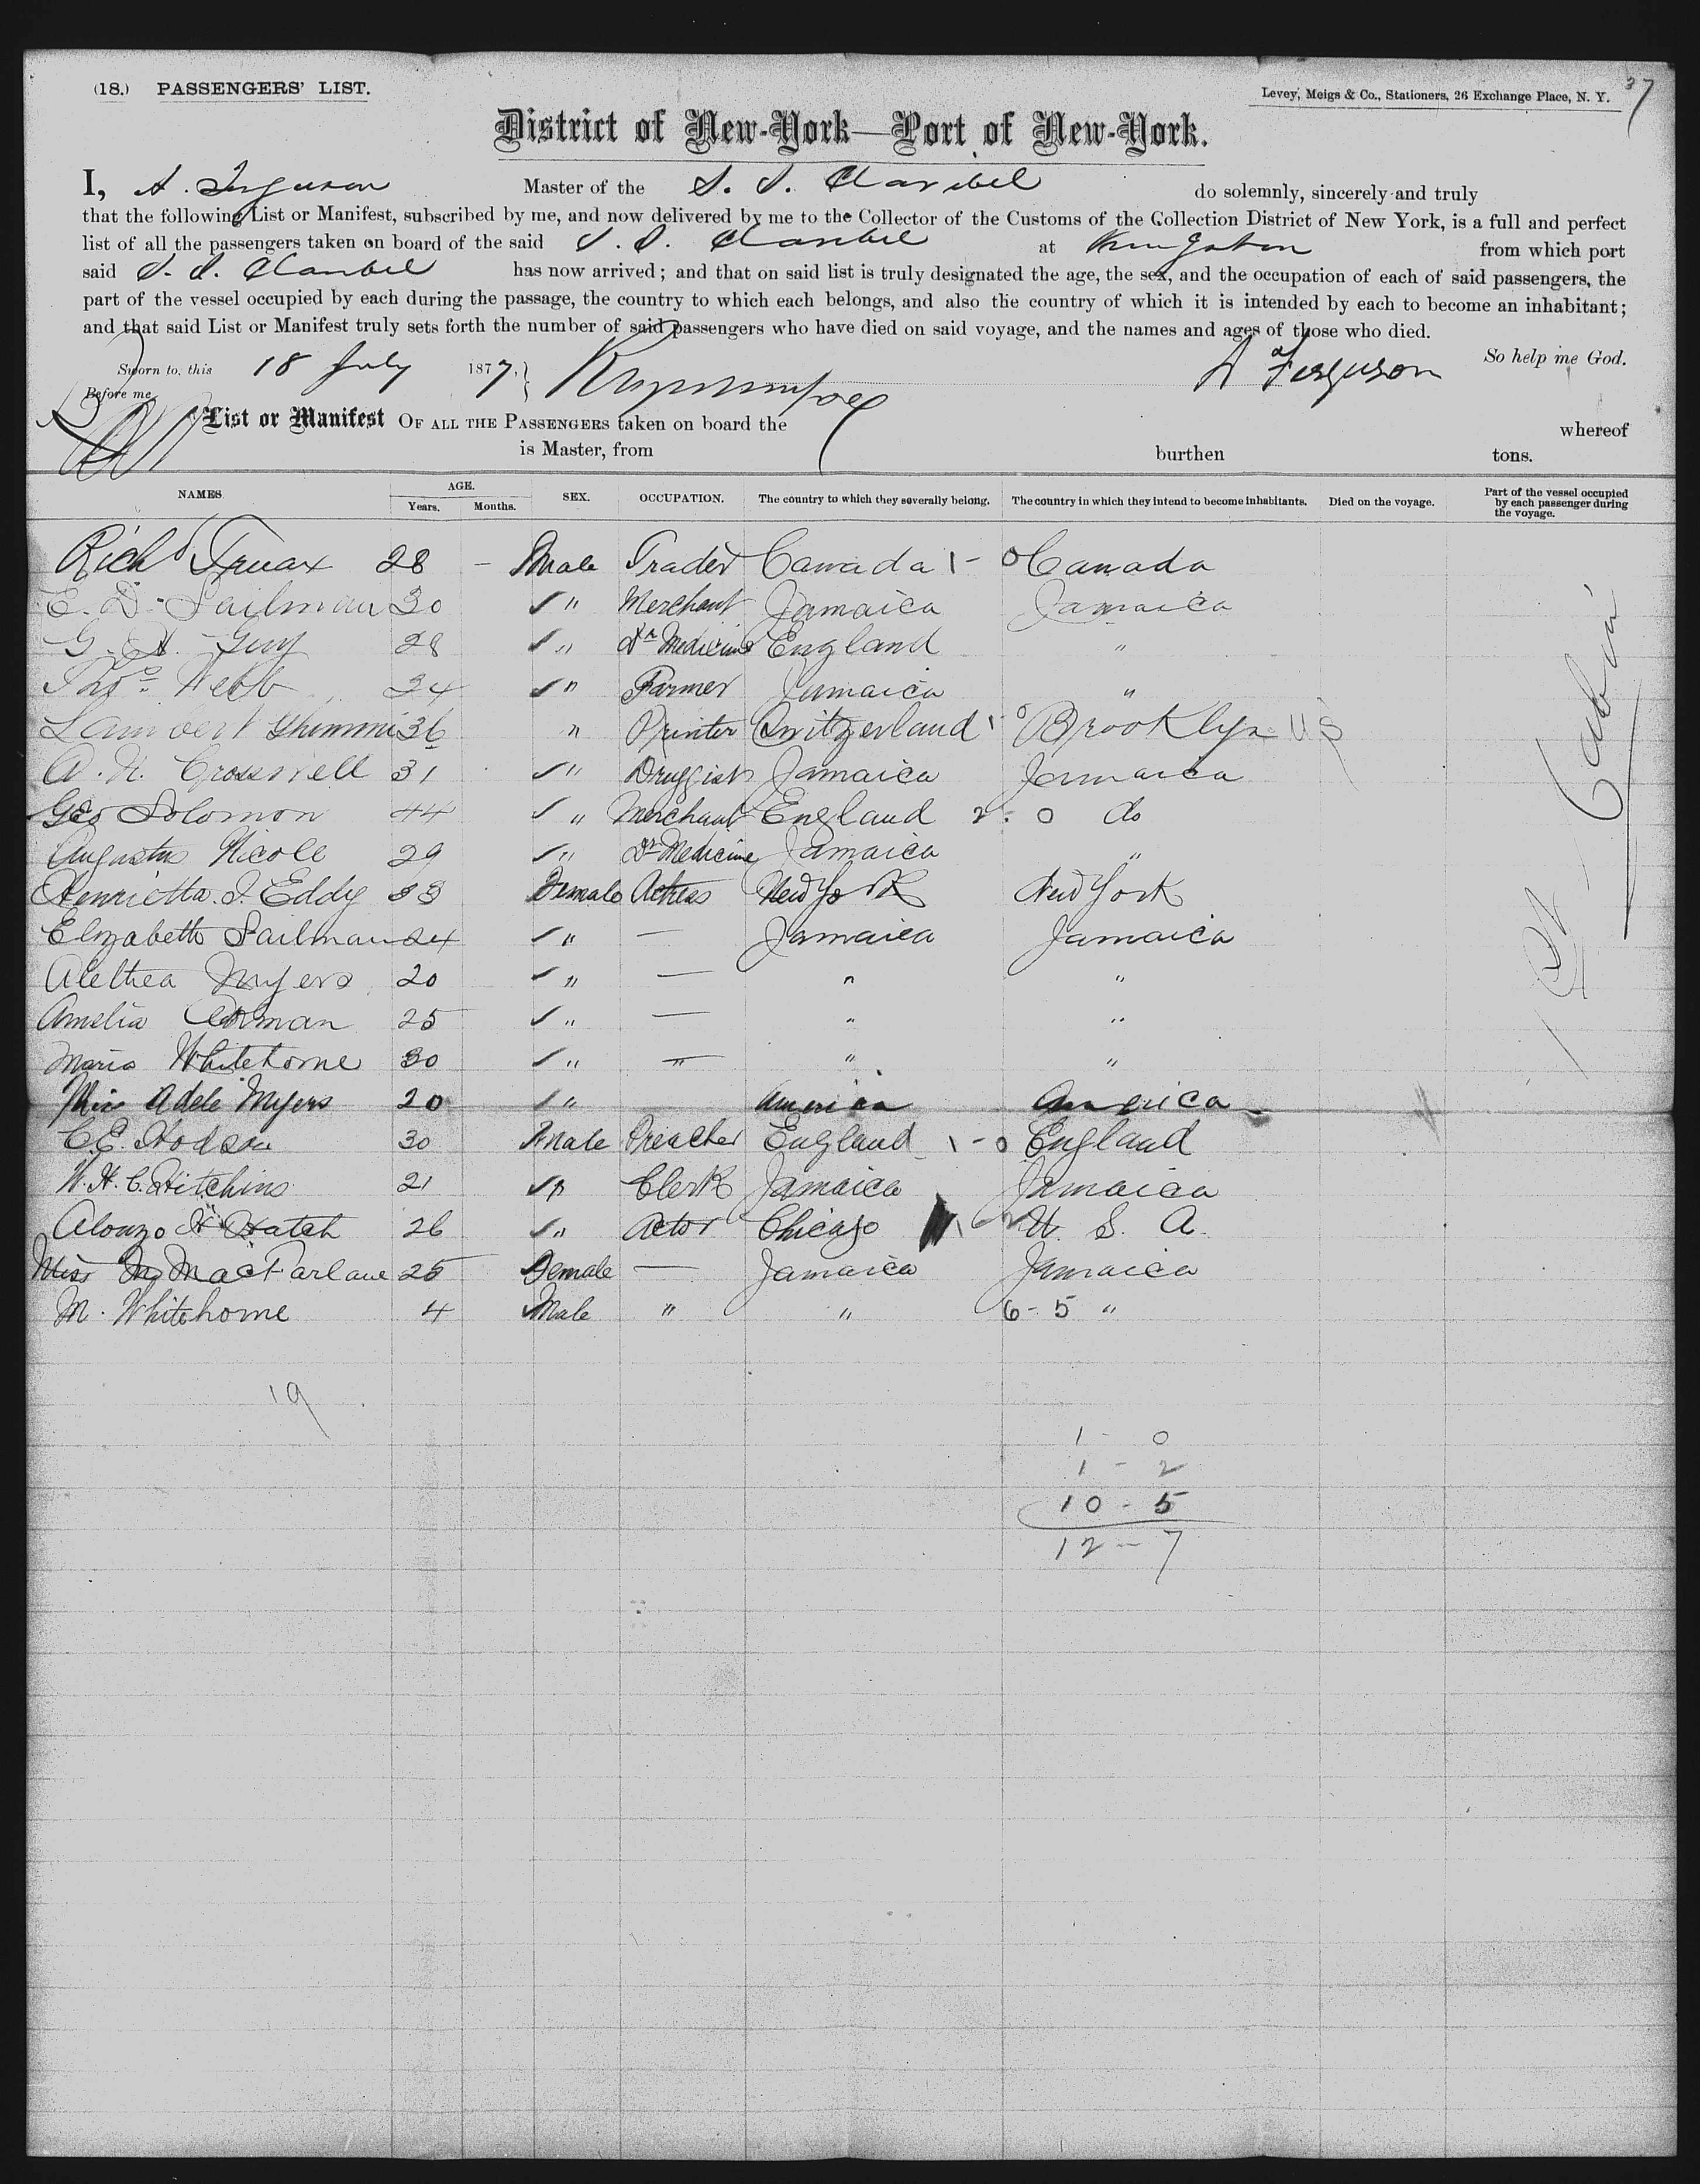 (18.) PASSENGERS' LIST.
Levey, Meigs & Co., Stationers, 26 Exchange Place, N. Y. 37
District of New-York—Port of New-York.
I, A. Ferguson Master of the S. S. Claribel do solemnly, sincerely and truly
that the following List or Manifest, subscribed by me, and now delivered by me to the Collector of the Customs of the Collection District of New York, is a full and perfect
list of all the passengers taken on board of the said S. S. Claribel at Kingston from which port
said S. S. Claribel has now arrived; and that on said list is truly designated the age, the sex, and the occupation of each of said passengers, the
part of the vessel occupied by each during the passage, the country to which each belongs, and also the country of which it is intended by each to become an inhabitant;
and that said List or Manifest truly sets forth the number of said passengers who have died on said voyage, and the names and ages of those who died.
So help me God.
Sworn to, this 18 July 1877. A Ferguson
Before me
List or Manifest OF ALL THE PASSENGERS taken on board the whereof
is Master, from burthen tons.
NAMES. AGE. Years. Months. SEX. OCCUPATION. The country to which they severally belong. The country in which they intend to become inhabitants. Died on the voyage. Part of the vessel occupied by each passenger during the voyage.
Richd Truax 28 - Male Trader Canada 1 - 0 Canada
E. D. Sailman 30 " Merchant Jamaica Jamaica
G. A. Guy 28 " Dr Medicine England "
Thos Webb 34 " Farmer Jamaica "
Lambert 36 " Printer Switzerland 1 - 0 Brooklyn US
A. N. Crosswell 31 " Druggist Jamaica Jamaica
Geo Solomon 44 " Merchant England 2 - 0 do
Augustus Nicole 29 " Dr Medicine Jamaica "
Henrietta I. Eddy 33 Female Actress New York New York
Elizabeth Sailman 24 " — Jamaica Jamaica
Alethea Myers 20 " — " "
Amelia 25 " — " "
Maria Whitehorne 30 " " " "
Miss Adele Myers 20 " America America
C. E. Hodson 30 Male Preacher England 1 - 0 England
W. H. C. Hitchins 21 " Clerk Jamaica Jamaica
Alonzo Hatch 26 " Actor Chicago U. S. A.
Miss M MacFarlane 25 Female — Jamaica Jamaica
M. Whitehorne 4 Male " " 6 - 5 "
Cabin
19
1 - 0
1 - 2
10 - 5
12 - 7